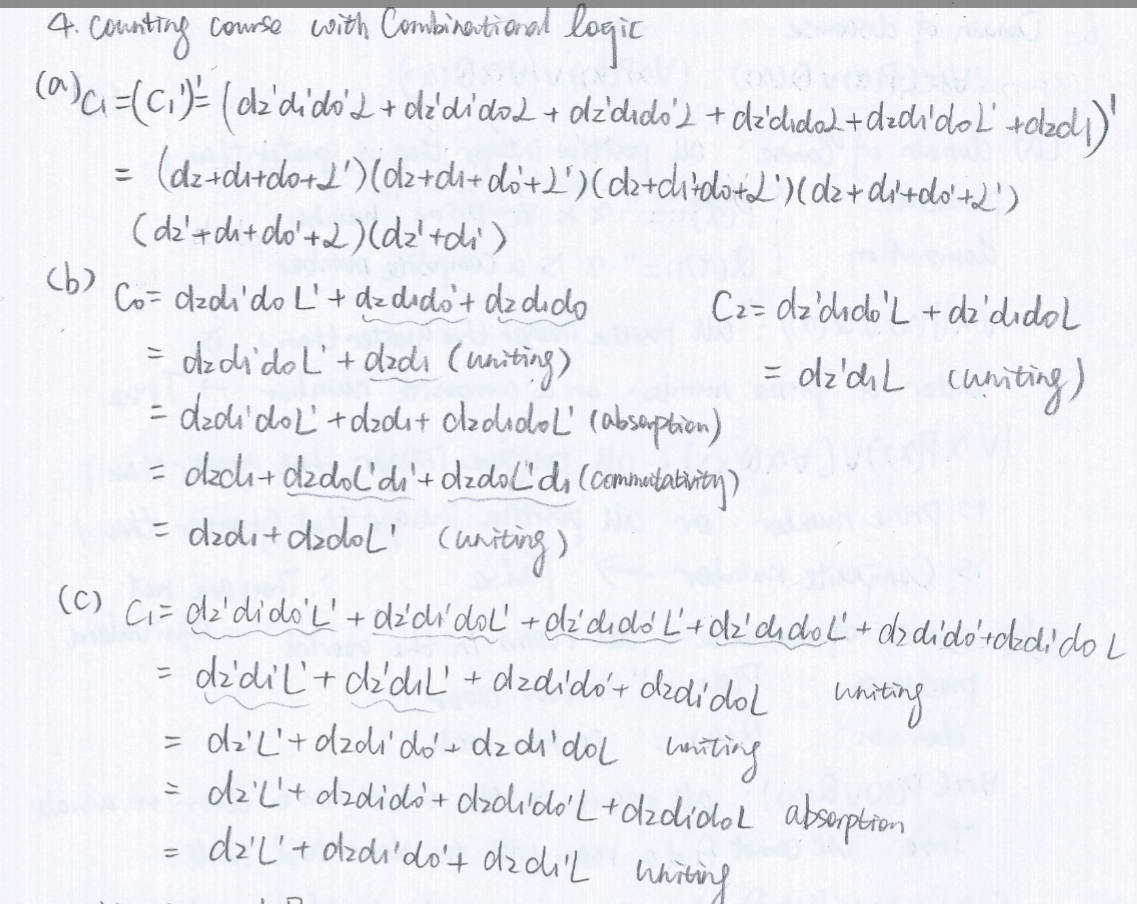 4. Counting course with Combinational logic
(a) C1=(C1')'=(d2'd1'd0'L + d2'd1'd0L + d2'd1d0'L + d2'd1d0L+d2d1'd0L'+d2d1)'
= (d2+d1+d0+L')(d2+d1+d0'+L')(d2+d1'+d0+L')(d2+d1'+d0'+L')
(d2'+d1+d0'+L)(d2'+d1')
(b) C0= d2d1'd0L' + d2d1d0'+ d2d1d0
= d2d1'd0L' + d2d1 (uniting)
= d2d1'd0L' + d2d1+ d2d1d0L' (absorption)
= d2d1+ d2d0L'd1'+ d2d0L'd1 (commutativity)
= d2d1+d2d0L' (uniting)
C2= d2'd1d0'L + d2'd1d0L
= d2'd1L (uniting)
(c) C1= d2'd1'd0'L' + d2'd1'd0L' + d2'd1d0'L'+d2'd1d0L'+ d2d1'd0'+d2d1'd0L
= d2'd1'L' + d2'd1L' + d2d1'd0'+ d2d1'd0L uniting
= d2'L'+d2d1'd0'+d2d1'd0L uniting
= d2'L'+d2d1'd0'+ d2d1'd0'L+d2d1'd0L absorption
= d2'L'+d2d1'd0'+ d2d1'L uniting